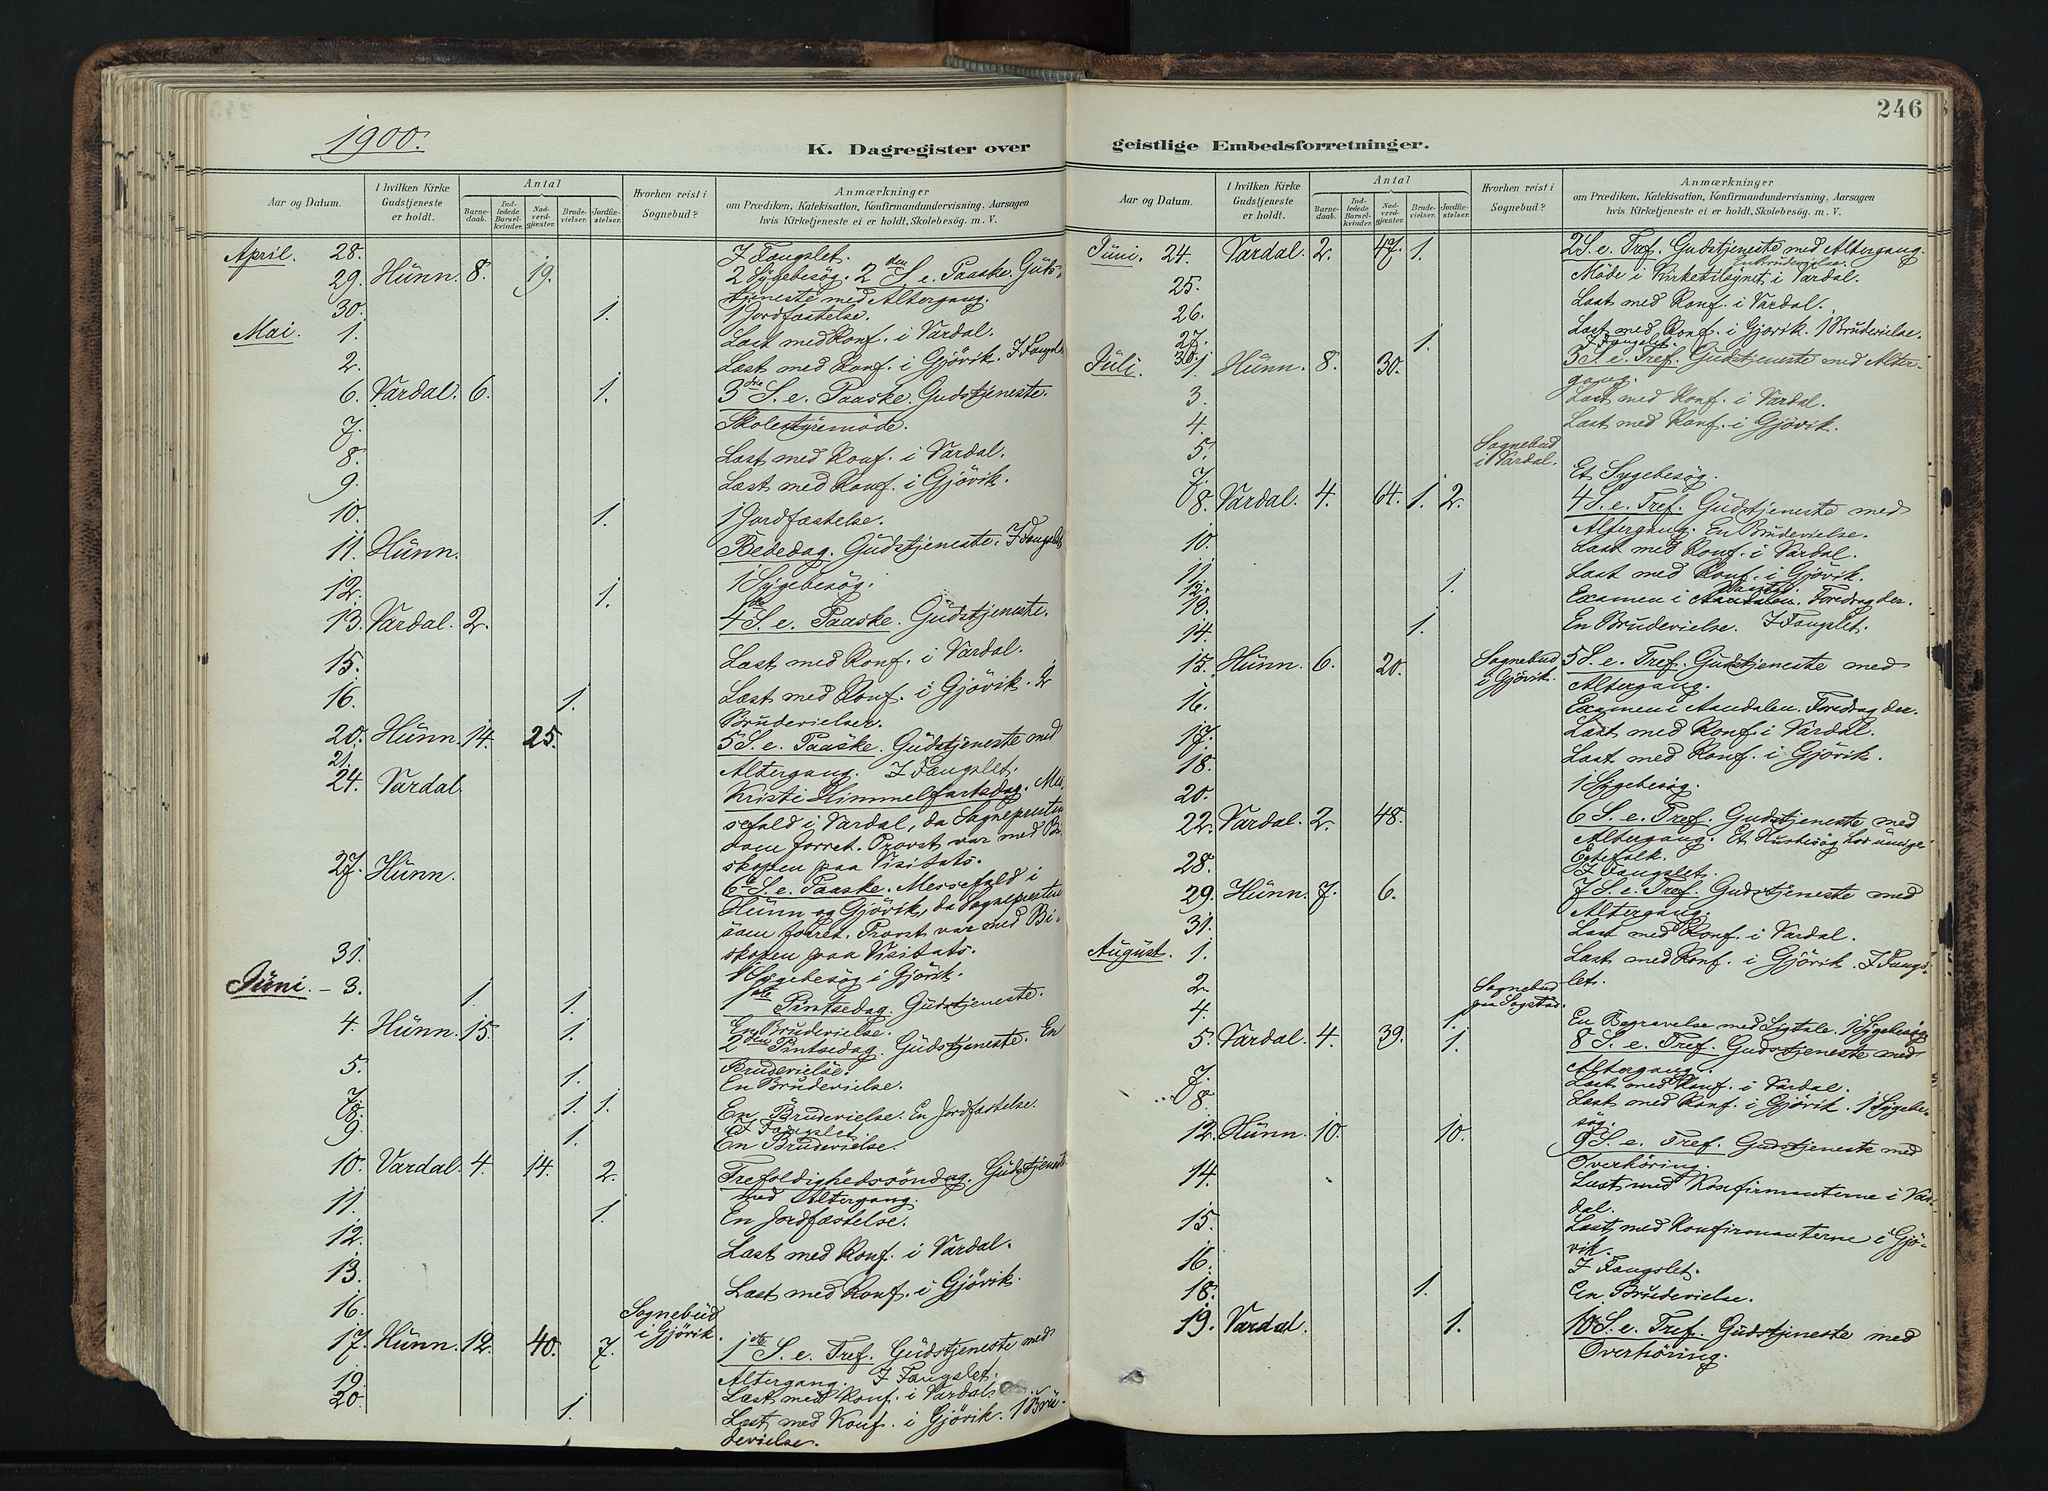 1900.
K. Dagregister over
Aar og Datum.
I hvilken Kirke Gudstjeneste er holdt.
Antal
Barnedaab.
Indledede Barselkvinder.
Nadverdgjæster.
Brudevielser.
Jordfæstelser.
Hvorhen reist i Sognebud?
Anmærkninger
om Prædiken, Katekisation, Konfirmandundervisning, Aarsagen
hvis Kirketjeneste ei er holdt, Skolebesøg m. V.
April. 28. I Fængslet.
29. Hunn. 8. 19. 2 Sygebesøg. 2den S. e. Paaske. Guds-
tjeneste med Altergang.
30. 1. 1 Jordfæstelse.
Mai. 1. Læst med Konf. i Vardal.
2. Læst med Konf. i Gjövik. I Fængslet
6. Vardal. 6. 1. 3die S. e. Paaske. Gudstjeneste.
7. Skolestyremöde.
8. Læst med Konf. i Vardal.
9. Læst med Konf. i Gjövik.
10. 1. 1 Jordfæstelse.
11. Hunn. Bededag. Gudstjeneste. I Fængslet
12. 1. 1 Sygebesög.
13. Vardal. 2. 4de S. e. Paaske. Gudstjeneste.
15. Læst med Konf. i Vardal.
16. 1. Læst med Konf. i Gjövik. 2
Brudevielser.
20. Hunn. 14. 25. 5 S. e. Paaske. Gudstjeneste med
21. Altergang. I Fængslet.
24. Vardal Kristi Himmelfartsdag. Mes-
sefald i Vardal, da Sognepresten
som forret. Provst var med Bi-
skopen paa Visitats.
27. Hunn. 6 S. e. Paaske. Messefald i
Hunn og Gjövik, da Sognepresten
som forret. Provst var med Bi-
skopen paa Visitats.
31. 1 Sygebesög i Gjövik.
Juni. - 3. 1. 1. 1ste Pintsedag. Gudstjeneste.
En Brudevielse.
4. Hunn. 15. 1. 2den Pintsedag. Gudstjeneste. En
Brudevielse.
5. 1. En Brudevielse.
7.
8. 1. 1. En Brudevielse. En Jordfæstelse.
I Fængslet
9. 1. En Brudevielse.
10. Vardal. 4. 14. 2. Trefoldighedssöndag. Gudstjeneste
med Altergang.
11. 1. En Jordfæstelse.
12. Læst med Konf. i Vardal.
13. Læst med Konf. i Gjövik.
16. Sognebud
i Gjövik.
17. Hunn. 12. 40. 7. 1ste S. e. Tref. Gudstjeneste med
Altergang. I Fængslet.
19. Læst med Konf. i Vardal.
20. 1. Læst med Konf. i Gjövik. 1 Bru-
devielse.
246
geistlige Embedsforretninger.
Aar og Datum.
I hvilken Kirke Gudstjeneste er holdt.
Antal
Barnedaab.
Indledede Barselkvinder.
Nadverdgjæster.
Brudevielser.
Jordfæstelser.
Hvorhen reist i Sognebud?
Anmærkninger
om Prædiken, Katekisation, Konfirmandundervisning, Aarsagen
hvis Kirketjeneste ei er holdt, Skolebesøg m. V.
Juni. 24. Vardal. 2. 47. 1. 2 S. e. Tref. Gudstjeneste med Altergang.
En Brudevielse.
25. Möde i Kirketilsynet i Vardal.
26. Læst med Konf. i Vardal.
27. 1. Læst med Konf. i Gjövik. 1 Brudevielse.
30. I Fængslet.
Juli. 1. Hunn. 8. 30. 3 S. e. Tref. Gudstjeneste med Alter-
gang.
3. Læst med Konf. i Vardal.
4. Læst med Konf. i Gjövik.
5. Sognebud
i Vardal.
7. Et Sygebesøg.
8. Vardal. 4. 64. 1. 2. 4 S. e. Tref. Gudstjeneste med
Altergang. En Brudevielse.
10. Læst med Konf. i Vardal.
11. Læst med Konf. i Gjövik.
12. 1.
13. Examen i Foredrag der.
14. 1. En Brudevielse. I Fængslet.
15. Hunn. 6. 20. Sognebud
i Gjövik. 5 S. e. Tref. Gudstjeneste med
Altergang.
16. Examen i Aandalen. Foredrag der.
17. Læst med Konf. i Vardal.
18. Læst med Konf. i Gjövik.
20. 1 Sygebesög.
22. Vardal. 2. 48. 6 S. e. Tref. Gudstjeneste med
Altergang. Et Husbesög hos uenige
Egtefolk.
28. I Fængslet.
29. Hunn. 7. 6. 7 S. e. Tref. Gudstjeneste med
Altergang.
31. Læst med Konf. i Vardal.
August. 1. Læst med Konf. i Gjövik. I Fængs-
let.
2. Sognebud
paa
4. 1. En Begravelse med Ligtale. 1 Sygebesög
5. Vardal. 4. 39. 1. 8 S. e. Tref. Gudstjeneste med
Altergang.
7. Læst med Konf. i Vardal.
8. Læst med Konf. i Gjövik. 1 Sygebe-
sög.
12. Hunn. 10. 10. 9 S. e. Tref. Gudstjeneste med
Overhöring.
14. Læst med Konfirmanterne i Var-
dal.
15. Læst med Konfirmanterne i Gjö-
vik.
16. I Fængslet.
18. 1. En Brudevielse.
19. Vardal. 1. 10 S. e. Tref. Gudstjeneste med
Overhöring.